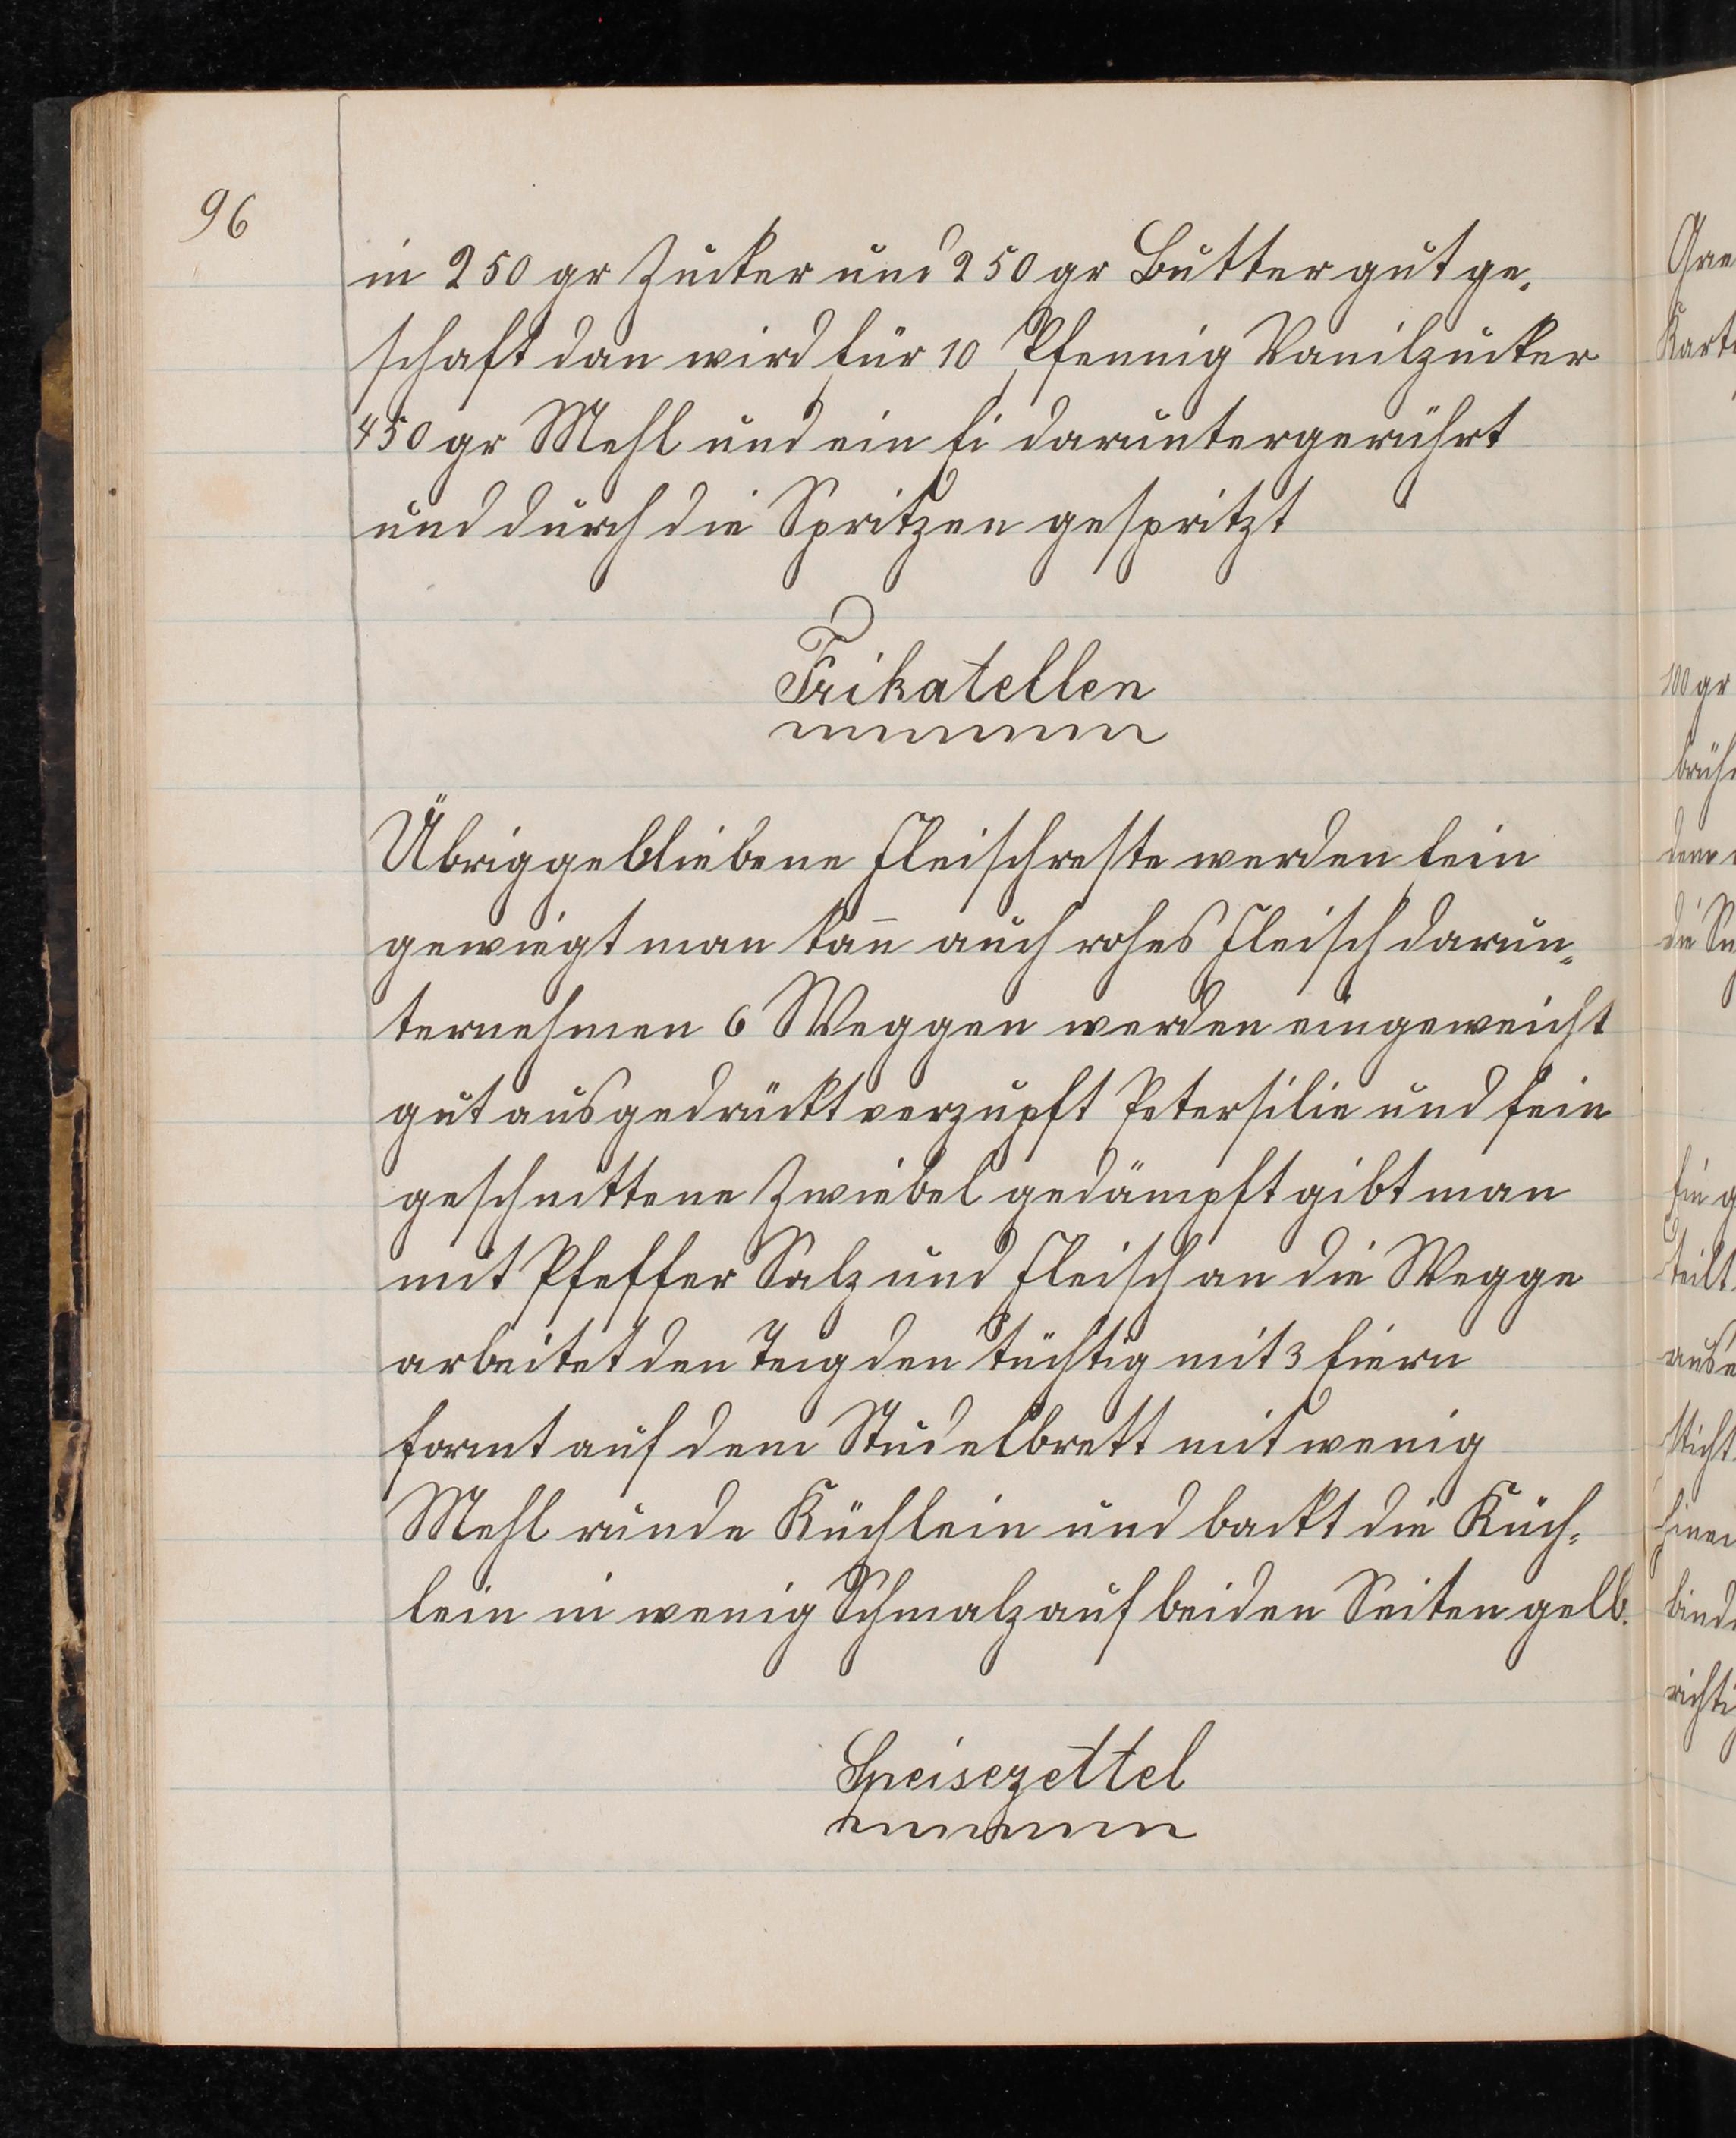 96
in 250 gr Zucker und 250 gr Butter gut ge-
schaft dan wird für 10 Pfennig Vanilzucker
450 gr Mehl und ein Ei daruntergerührt
und durch die Spritzen gespritzt
Frikatellen
Übriggebliebene Fleischreste werden fein
gewiegt man kan̄ auch rohes Fleisch darun-
ternehmen 6 Weggen werden eingeweicht
gut ausgedrückt verzupft Petersilie und fein
geschnittene Zwiebel gedämpft gibt man
mit Pfeffer Salz und Fleisch an die Wegge
arbeitet den Teig den tüchtig mit 3 Eiern
formt auf dem Nudelbrett mit wenig
Mehl runde Küchlein und backt die Küch-
lein in wenig Schmalz auf beiden Seiten gelb.
Speisezettel